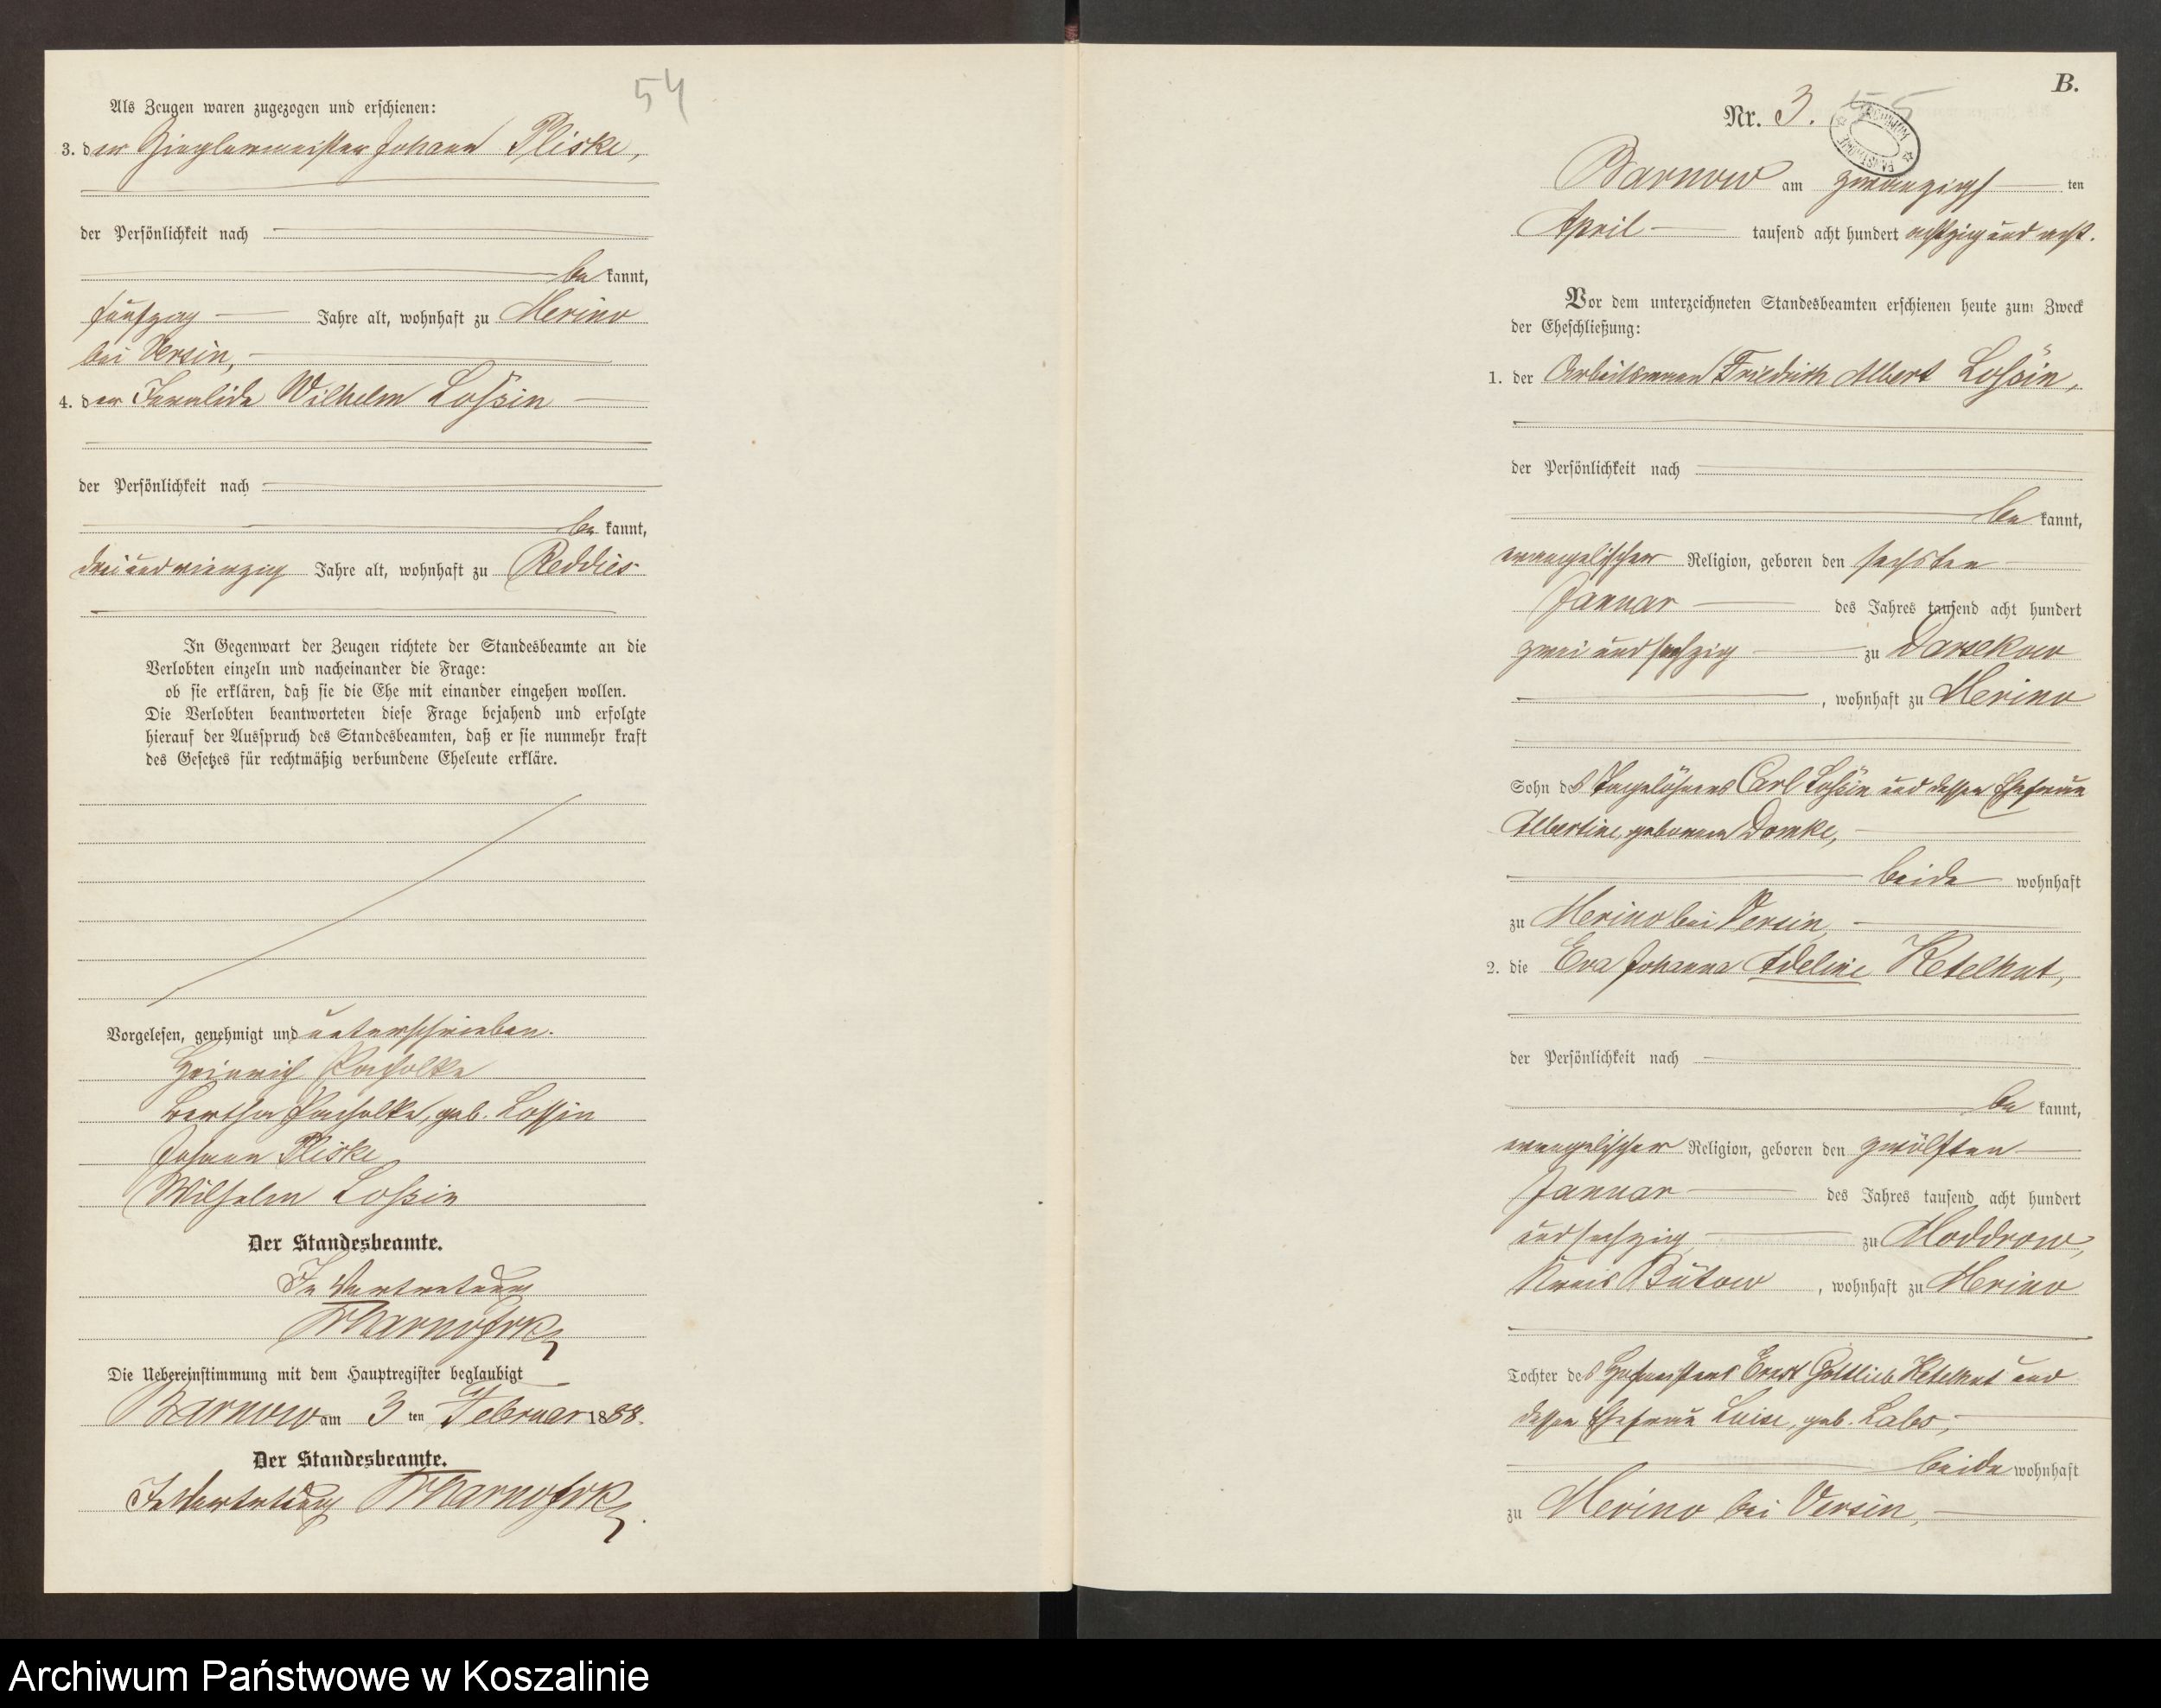 54
Als Zeugen waren zugezogen und erschienen:
3. der Zieglermeister Johann Pliske,
der Persönlichkeit nach
be kannt,
fünfzig Jahre alt, wohnhaft zu Merino
bei Versin,
4. der Invalide Wilhelm Loßin
der Persönlichkeit nach
be kannt,
dreiundvierzig Jahre alt, wohnhaft zu Reddies
In Gegenwart der Zeugen richtete der Standesbeamte an die
Verlobten einzeln und nacheinander die Frage:
ob sie erklären, daß sie die Ehe mit einander eingehen wollen.
Die Verlobten beantworteten diese Frage bejahend und erfolgte
hierauf der Ausspruch des Standesbeamten, daß er sie nunmehr kraft
des Gesetzes für rechtmäßig verbundene Eheleute erkläre.
Vorgelesen, genehmigt und unterschrieben.
Heinrich Pacholke
Bertha Pacholke, geb. Lossin
Johann Pliske
Wilhelm Loßin
Der Standesbeamte.
In Vertretung
Die Uebereinstimmung mit dem Hauptregister beglaubigt
Barnow am 3 ten Februar 1888.
Der Standesbeamte.
In Vertretung
B.
Nr. 3.
55
ARCHIWUM PAŃSTWOWE
Barnow am zwanzigs ten
April tausend acht hundert achtzig und acht.
Vor dem unterzeichneten Standesbeamten erschienen heute zum Zweck
der Eheschließung:
1. der Arbeitsmann Friedrich Albert Loßin,
der Persönlichkeit nach
be kannt,
evangelischer Religion, geboren den sechsten
Januar des Jahres tausend acht hundert
zwei und sechzig zu Darsekow
, wohnhaft zu Merino
Sohn des Tagelöhners Carl Loßin und dessen Ehefrau
Albertine, geborenen Domke,
beide wohnhaft
zu Merino bei Versin
2. die Eva Johanna Adeline Ketelhut,
der Persönlichkeit nach
be kannt,
evangelischer Religion, geboren den zwölften
Januar des Jahres tausend acht hundert
und sechzig zu Moddrow,
Kreis Bütow , wohnhaft zu Merino
Tochter des Hofmeisters Ernst Gottlieb Ketelhut und
dessen Ehefrau Luise, geb. Labs,
beide wohnhaft
zu Merino bei Versin,
Archiwum Państwowe w Koszalinie